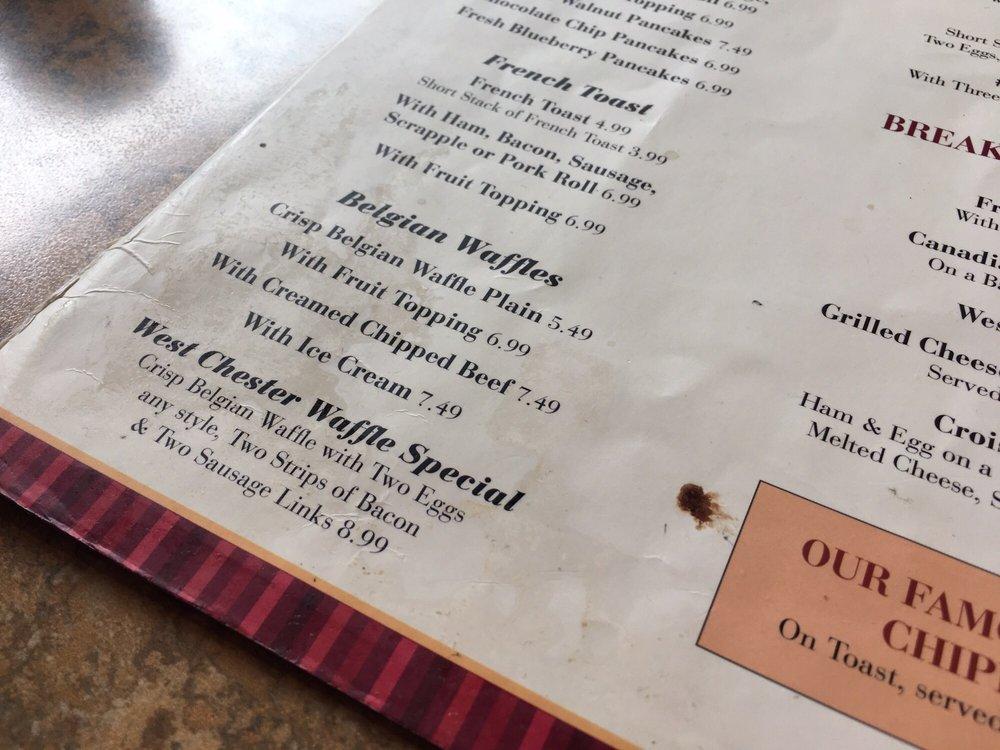 6.99
Topping 6.99
Walnut Pancakes 7.49
Chocolate Chip Pancakes 6.99
Fresh Blueberry Pancakes 6.99
French Toast
French Toast 4.99
Short Stack of French Toast 3.99
With Ham, Bacon, Sausage,
Scrapple or Pork Roll 6.99
With Fruit Topping 6.99
Belgian Waffles
Crisp Belgian Waffle Plain 5.49
With Fruit Topping 6.99
With Creamed Chipped Beef 7.49
With Ice Cream 7.49
West Chester Waffle Special
Crisp Belgian Waffle with Two Eggs
any style, Two Strips of Bacon
& Two Sausage Links 8.99
Short S
Two Eggs,
With Three
BREAK
Fr
With
Canadia
On a B
Wes
Grilled Cheese
Served
Crois
Ham & Egg on a
Melted Cheese, S
OUR FAMO
CHIP
On Toast, served